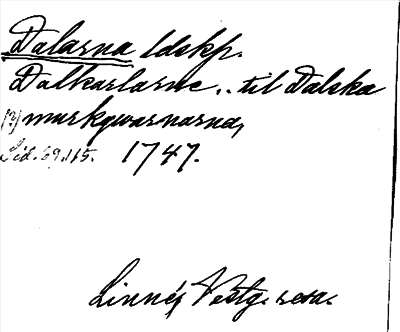 Dalarna ldskp.
Dalkarlarne .. til Dalska
(?) murkqwarnarna,
Sid. 69, 115. 1747.
Linné, Västg. resa.